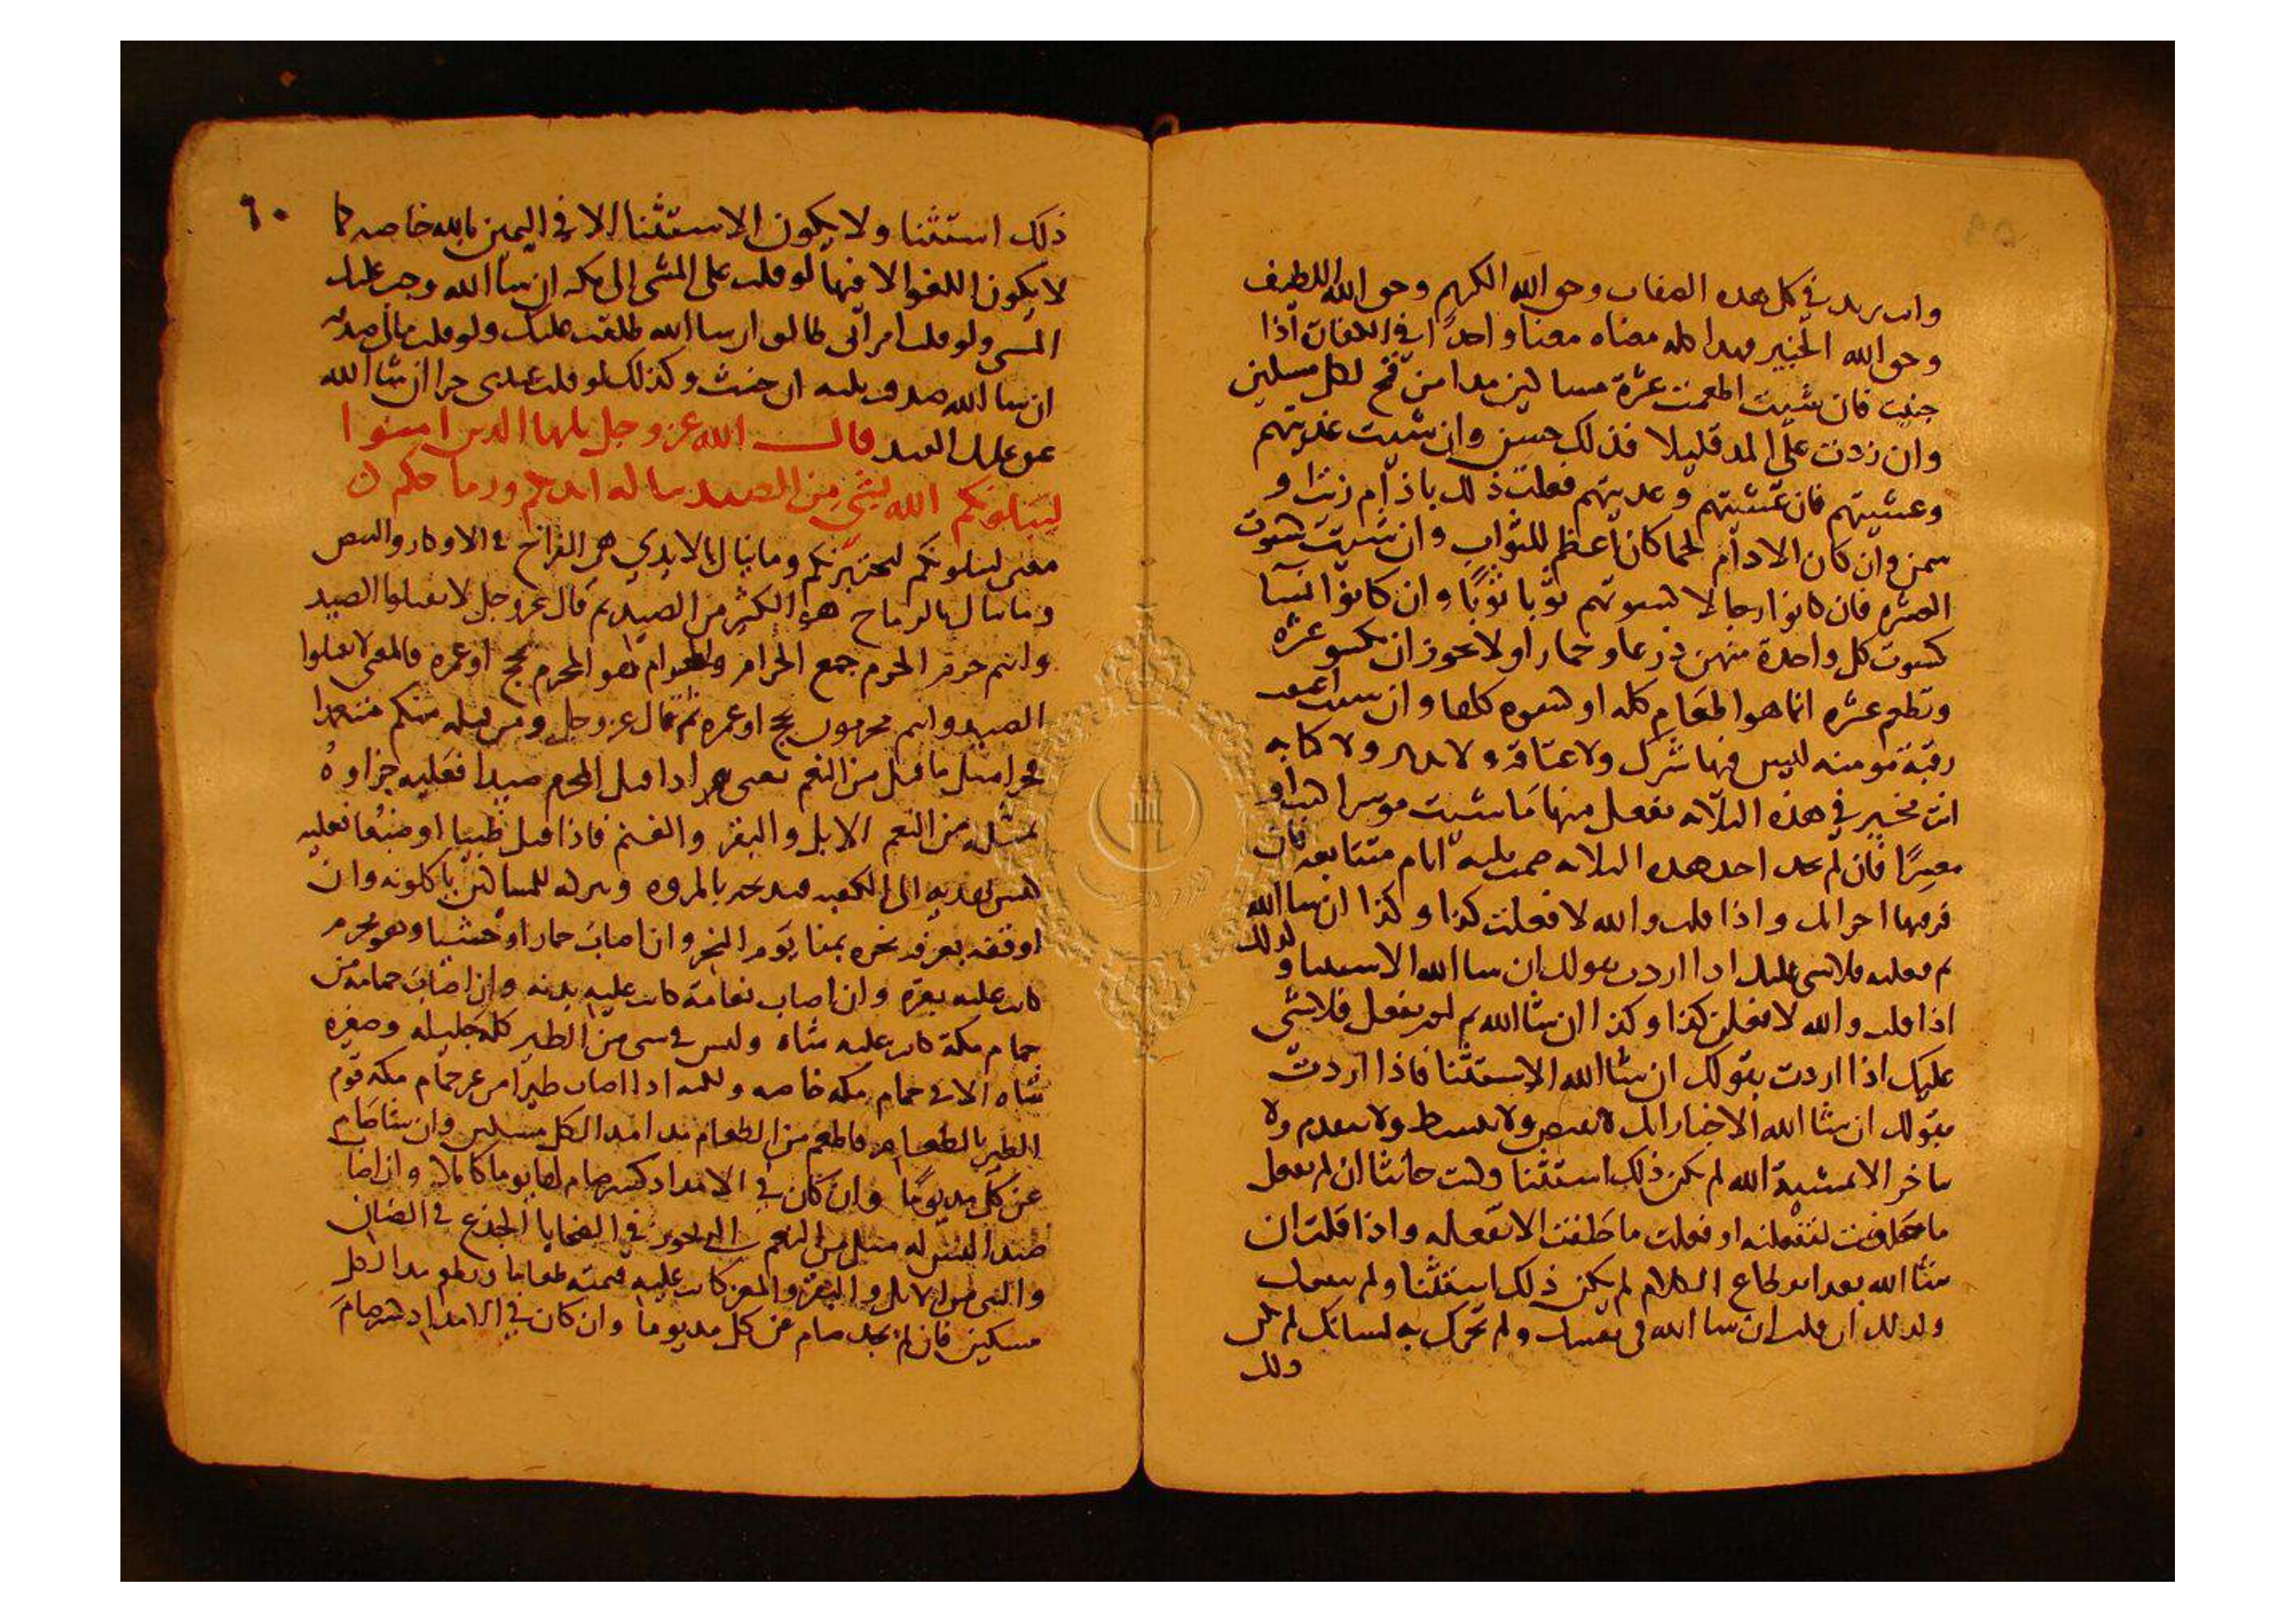 وانت تريد في كل هذه الصفات وحق الله الكريم وحق الله اللطيف
وحق الله الخبير فهذا كله معناه معنا واحدا في الكفارات اذا
حنثت فان شيت اطعمت عشرة مساكين مدا من قمح لكل مسكين
وان زدت على المد قليلا فذلك حسن وان شيت غديتهم
وعشيتهم فان عشيتهم وغديتهم فعلت ذلك باذام زيتا و
سمن وان كان الادام لحما كان اعظم للثواب وان شيت كسوت
العشرة فان كانوا رجالا كسوتهم ثوبا ثوبا وان كانوا نسا
كسوت كل واحدة منهن درعا وخمارا ولا يجوز ان تكسو عشرة
وتطعم عشره انما هو اطعام كله او كسوه كلها وان شيت اعتقت
رقبة مومنه ليس فيها شرك ولا عتاقة ولا تدبير ولا كتابه
انت مخير في هذه الثلاثه تفعل منها ما شيت موسرا كنت او
معسرا فان لم تجد احد هذه الثلاثه صمت ثلثة ايام متتابعه فان
فرقتها اجزاك واذا قلت والله لا فعلت كذا وكذا ان شا الله
ثم فعلته فلا شي عليك اذا اردت بقولك ان شا الله الاستثنا وكذلك
اذا قلت والله لافعلن كذا وكذا ان شا الله ثم لم تفعل فلا شي
عليك اذا اردت بقولك ان شا الله الاستثنا فاذا اردت
بقولك ان شا الله الاخبار انك لا تقبض ولا تبسط ولا تقدم ولا
تاخر الا بمشية الله لم يكن ذلك استثنا وكنت حانثا ان لم تفعل
ما حلفت لتفعلنه او فعلت ما حلفت الا تفعله واذا قلت ان
شا الله بعد انقطاع الكلام لم يكن ذلك استثنا ولم ينفعك
وكذلك ان قلت ان شا الله في نفسك ولم تحرك به لسانك لم يكن
ذلك
٦٠
ذلك استثنا ولا يكون الاستثنا الا في اليمين بالله خاصه كما
لا يكون اللغو الا فيها لو قلت علي المشي الى مكه ان شا الله وجب عليك
المشي ولو قلت امراتي طالق ان شا الله طلقت عليك ولو قلت مالي صدقه
ان شا الله صدق ثلثه ان حنث وكذلك لو قلت عبدي حر ان شا الله
عتق عليك العبد قال الله عز وجل يايها الذين امنوا
ليبلونكم الله بشي من الصيد تناله ايديكم ورماحكم
معنى ليبلونكم ليختبرنكم وما ينال بالايدي هي الفراخ في الاوكار والبيض
وما ينال بالرماح هو الكثير من الصيد ثم قال عز وجل لا تقتلوا الصيد
وانتم حرم الحرم جمع الحرام والحرام هو المحرم بحج او عمره فالمعنى لا تقتلوا
الصيد وانتم محرمون بحج او عمره ثم قال عز وجل ومن قتله منكم متعمدا
فجزا مثل ما قتل من النعم يعني اذا قتل المحرم صيدا فعليه جزاوه
بمثله من النعم الابل والبقر والغنم فاذا قتل ظبيا او ضبعا فعليه
كبش يهديه الى الكعبه قد نحره بالمروه وتركه للمساكين ياكلونه وان
اوقفه بعرفه نحره بمنا يوم النحر وان اصاب حمارا وحشيا وهو محرم
كانت عليه بقره وان اصاب نعامة كانت عليه بدنه وان اصاب حمامة من
حمام مكة كانت عليه شاه وليس في شي من الطير كله جليله وصغيره
شاه الا في حمام مكه خاصه ولكنه اذا اصاب طيرا من غير حمام مكه قوم
الطير بالطعام فاطعم من الطعام مدا مدا لكل مسكين وان شا صام
عن كل مد يوما وان كان في الامداد كسر صام لها يوما كاملا وان اصاب
صيدا ليس له مثل من النعم التي تجوز في الضحايا الجذع في الضان
والثني من الابل والبقر والمعز كانت عليه قيمته طعاما يطعم مدا لكل
مسكين فان لم يجد صام عن كل مد يوما وان كان في الامداد كسر صام